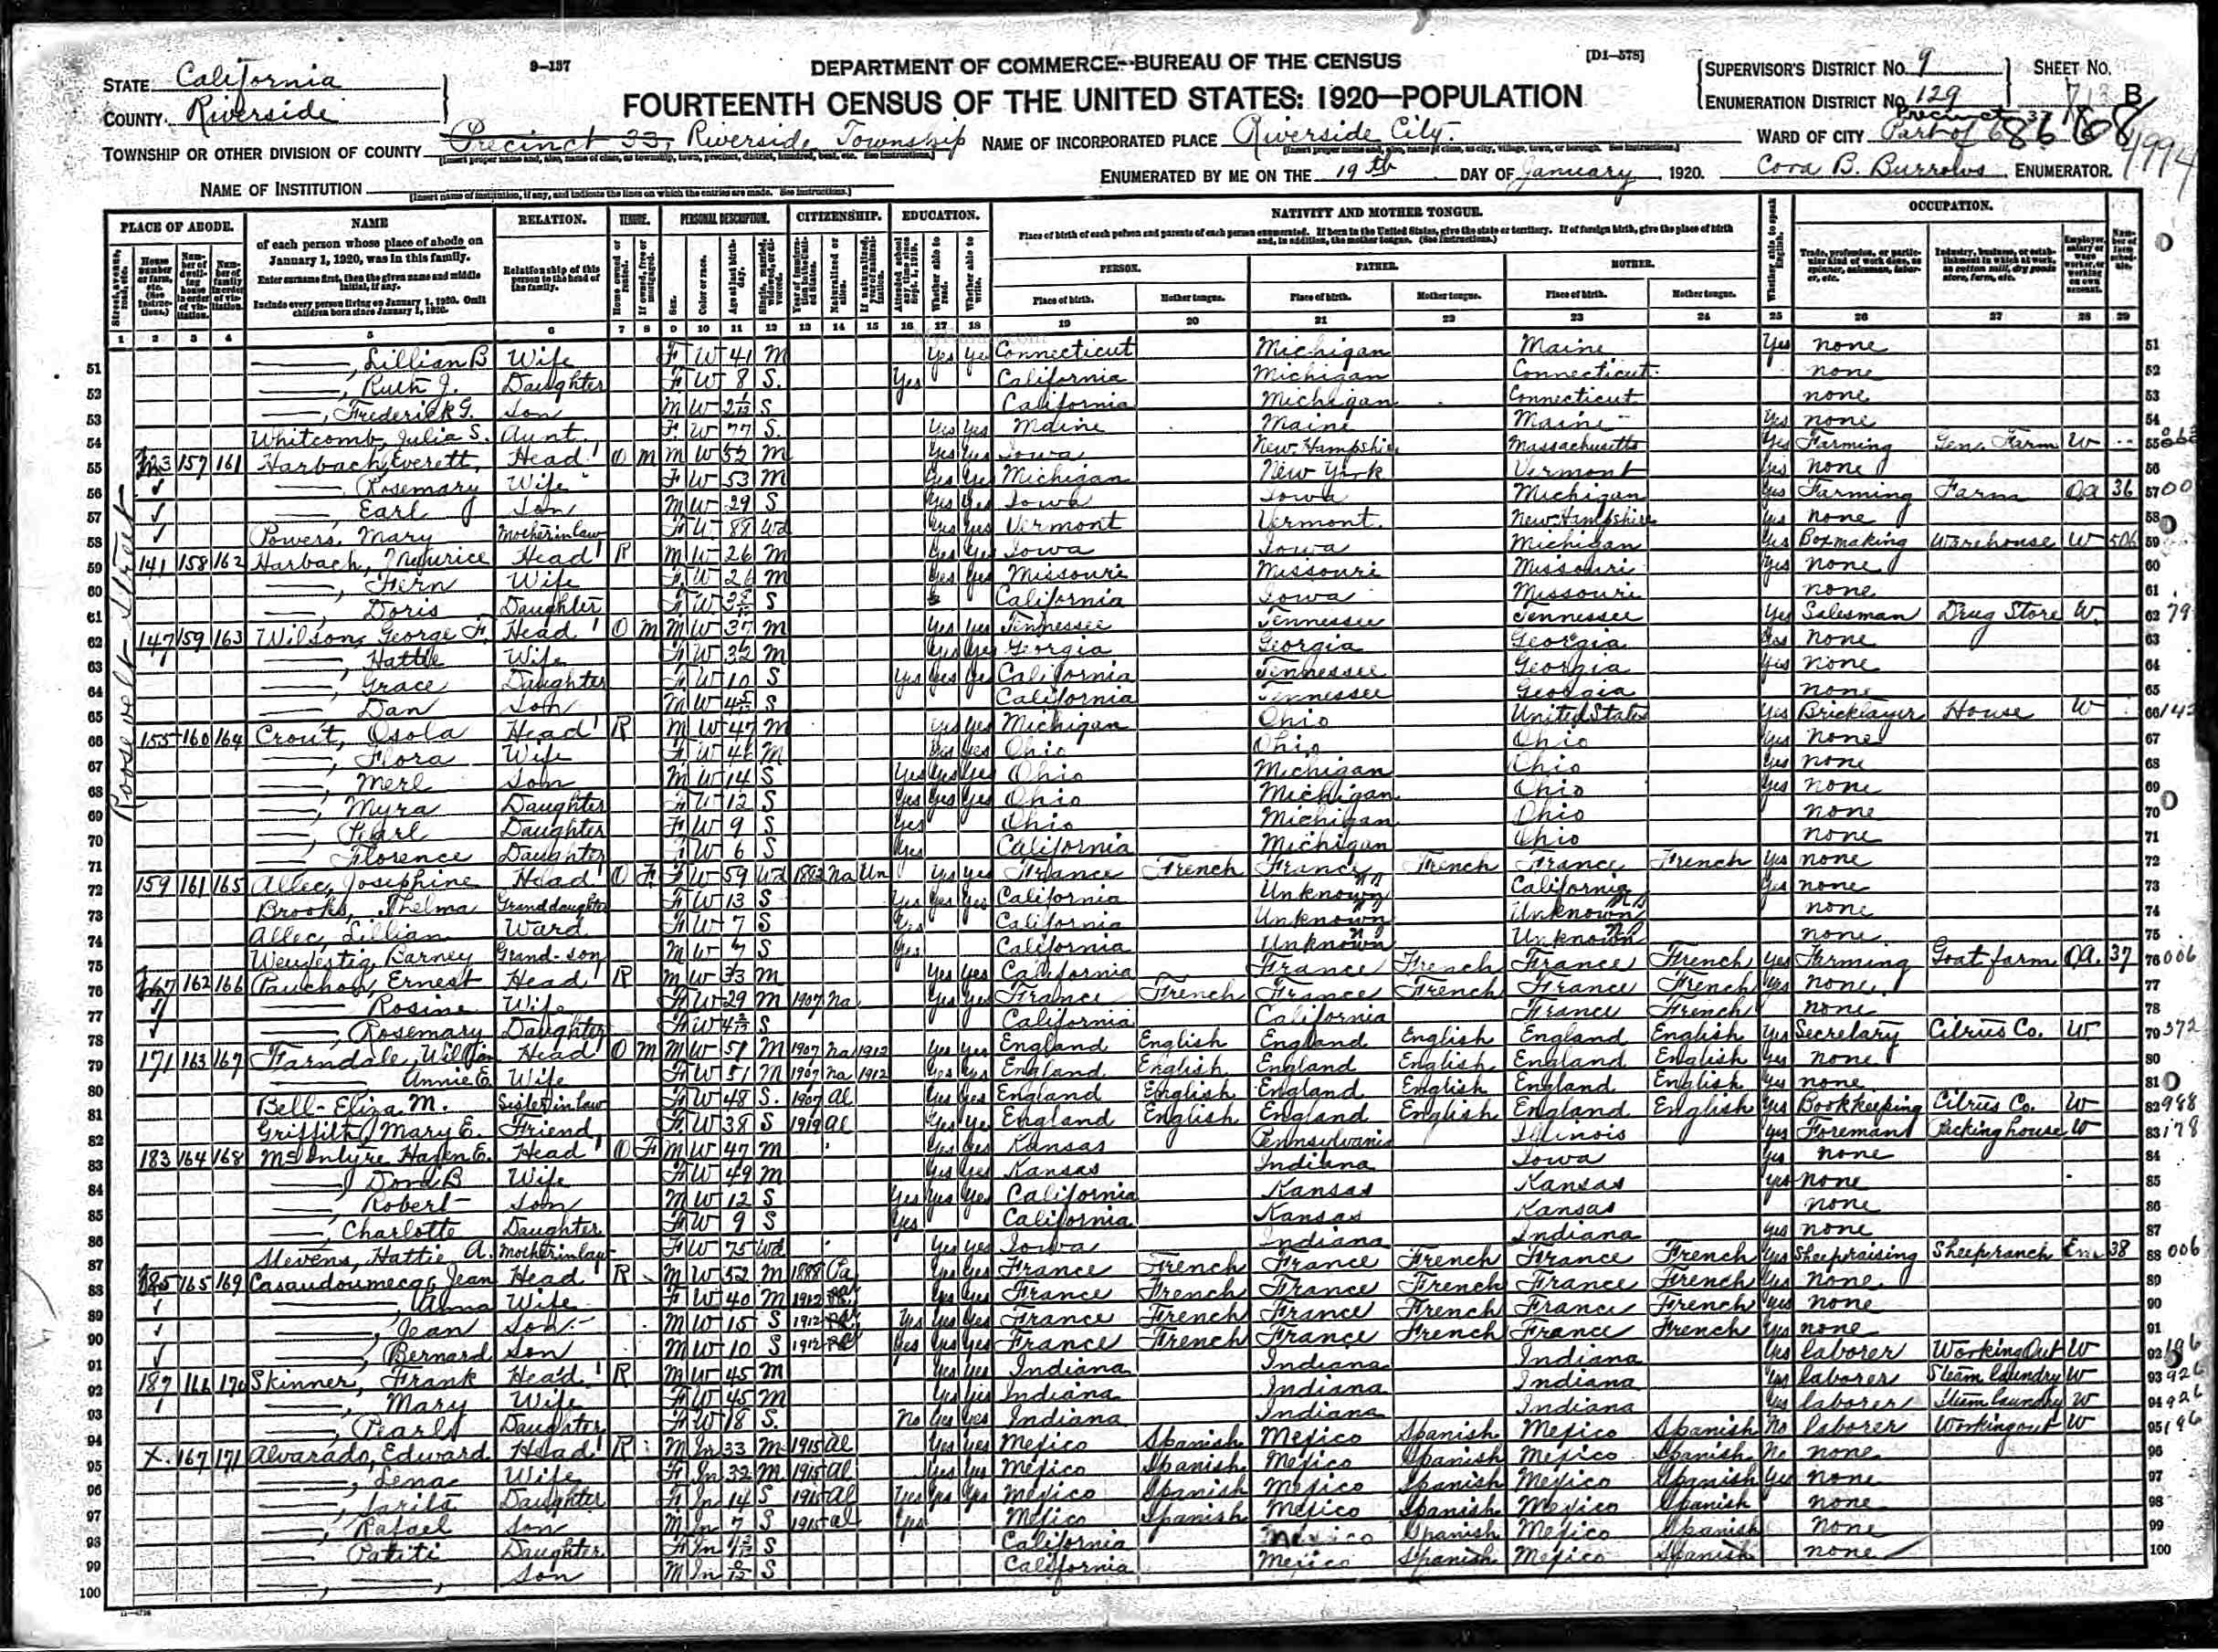 9—137
DEPARTMENT OF COMMERCE—BUREAU OF THE CENSUS
[D1—578]
STATE California
COUNTY Riverside
FOURTEENTH CENSUS OF THE UNITED STATES: 1920—POPULATION
SUPERVISOR'S DISTRICT NO. 9
SHEET NO.
ENUMERATION DISTRICT NO. 129
B
TOWNSHIP OR OTHER DIVISION OF COUNTY Precinct 33, Riverside Township
NAME OF INCORPORATED PLACE Riverside City.
WARD OF CITY Part of 6
NAME OF INSTITUTION
ENUMERATED BY ME ON THE 19th DAY OF January, 1920.
Cora B. Burrows, ENUMERATOR.
PLACE OF ABODE. NAME RELATION. TENURE. PERSONAL DESCRIPTION. CITIZENSHIP. EDUCATION. NATIVITY AND MOTHER TONGUE. OCCUPATION.
of each person whose place of abode on January 1, 1920, was in this family.
Enter surname first, then the given name and middle initial, if any.
Include every person living on January 1, 1920. Omit children born since January 1, 1920.
Relationship of this person to the head of the family.
Place of birth of each person and parents of each person enumerated. If born in the United States, give the state or territory. If of foreign birth, give the place of birth and, in addition, the mother tongue. (See Instructions.)
PERSON. FATHER. MOTHER.
Place of birth. Mother tongue. Place of birth. Mother tongue. Place of birth. Mother tongue.
1 2 3 4 5 6 7 8 9 10 11 12 13 14 15 16 17 18 19 20 21 22 23 24 25 26 27 28 29
Roosevelt Street
51 , Lillian B Wife F W 41 M Yes Yes Connecticut Michigan Maine Yes none 51
52 , Ruth J. Daughter F W 8 S. Yes California Michigan Connecticut none 52
53 , Frederick G. Son M W S California Michigan Connecticut none 53
54 Whitcomb, Julia S. Aunt F W 77 S. Yes Yes Maine Maine Maine Yes none 54
55 157 161 Harbach, Everett, Head O M M W 52 M Yes Yes Iowa New Hampshire Massachusetts Yes Farming Gen. Farm W 55
56 Rosemary Wife F W 53 M Yes Yes Michigan New York Vermont Yes none 56
57 , Earl J Son M W 29 S Yes Yes Iowa Iowa Michigan Yes Farming Farm OA 36 57
58 Powers, Mary Mother in law F W 88 Wd Yes Yes Vermont Vermont New Hampshire Yes none 58
59 141 158 162 Harbach, Maurice Head R M W 26 M Yes Yes Iowa Iowa Michigan Yes Boxmaking Warehouse W 59
60 , Fern Wife F W 26 M Yes Yes Missouri Missouri Missouri Yes none 60
61 , Doris Daughter F W S California Iowa Missouri none 61
62 147 159 163 Wilson, George F, Head O M M W 37 M Yes Yes Tennessee Tennessee Tennessee Yes Salesman Drug Store W. 62
63 , Hattie Wife F W 32 M Yes Yes Georgia Georgia Georgia Yes none 63
64 , Grace Daughter F W 10 S Yes Yes Yes California Tennessee Georgia Yes none 64
65 , Dan Son M W S California Tennessee Georgia none 65
66 155 160 164 Crout, Osola Head R M W 47 M Yes Yes Michigan Ohio United States Yes Bricklayer House W 66
67 , Flora Wife F W 46 M Yes Yes Ohio Ohio Ohio Yes none 67
68 , Merl Son M W 14 S Yes Yes Yes Ohio Michigan Ohio Yes none 68
69 , Myra Daughter F W 12 S Yes Yes Yes Ohio Michigan Ohio Yes none 69
70 , Pearl Daughter F W 9 S Yes Ohio Michigan Ohio none 70
71 , Florence Daughter F W 6 S Yes California Michigan Ohio none 71
72 159 161 165 Allec, Josephine Head O F F W 59 Wd 1882 Na Un Yes Yes France French France French France French Yes none 72
73 Brooks, Thelma Granddaughter F W 13 S Yes Yes Yes California Unknown California Yes none 73
74 Allec, Lillian Ward F W 7 S Yes California Unknown Unknown none 74
75 Barney Grand-son M W 7 S Yes California Unknown Unknown none 75
76 162 166 Pauchon, Ernest Head R M W 33 M Yes Yes California France French France French Yes Farming Goat farm OA. 37 76
77 Rosine Wife F W 29 M 1907 Na Yes Yes France French France French France French Yes none 77
78 , Rosemary Daughter F W S California California France French none 78
79 171 163 167 Farndale, William Head O M M W 51 M 1907 Na 1912 Yes Yes England English England English England English Yes Secretary Citrus Co. W 79
80 Annie E. Wife F W 51 M 1907 Na 1912 Yes Yes England English England English England English Yes none 80
81 Bell- Eliza M. Sister in law F W 48 S. 1907 Al Yes Yes England English England English England English Yes none 81
82 Griffith, Mary E. Friend F W 38 S 1919 Al Yes Yes England English England English England English Yes Bookkeeping Citrus Co. W 82
83 183 164 168 McIntyre, Hazen E. Head O F M W 47 M Yes Yes Kansas Pennsylvania Illinois Yes Foreman Packing house W 83
84 Dora B Wife F W 49 M Yes Yes Kansas Indiana Iowa Yes none 84
85 , Robert Son M W 12 S Yes Yes Yes California Kansas Kansas Yes none 85
86 , Charlotte Daughter F W 9 S Yes California Kansas Kansas none 86
87 Stevens, Hattie A. Mother in law F W 75 Wd Yes Yes Iowa Indiana Indiana Yes none 87
88 185 165 169 Casaudoumecq, Jean Head R M W 52 M 1888 Pa Yes Yes France French France French France French Yes Sheepraising Sheepranch Em 38 88
89 , Anna Wife F W 40 M 1912 Yes Yes France French France French France French Yes none 89
90 , Jean Son M W 15 S 1912 Yes Yes Yes France French France French France French Yes none 90
91 , Bernard Son M W 10 S 1912 Yes Yes Yes France French France French France French Yes none 91
92 187 166 170 Skinner, Frank Head R M W 45 M Yes Yes Indiana Indiana Indiana Yes laborer Working Out W 92
93 , Mary Wife F W 45 M Yes Yes Indiana Indiana Indiana Yes laborer Steam laundry W 93
94 , Pearl Daughter F W 18 S. No Yes Yes Indiana Indiana Indiana Yes laborer Steam laundry W 94
95 X 167 171 Alvarado, Edward Head R M In 33 M 1915 Al Yes Yes Mexico Spanish Mexico Spanish Mexico Spanish No laborer Working out W 95
96 , Lena Wife F In 32 M 1915 Al Yes Yes Mexico Spanish Mexico Spanish Mexico Spanish No none 96
97 , Daughter F In 14 S 1915 Al Yes Yes Yes Mexico Spanish Mexico Spanish Mexico Spanish Yes none 97
, Rafael Son M In 7 S 1915 Al Yes Mexico Spanish Mexico Spanish Mexico Spanish none 98
99 Patiti Daughter F In S California Mexico Spanish Mexico Spanish none 99
100 Son M In S California Mexico Spanish Mexico Spanish none 100